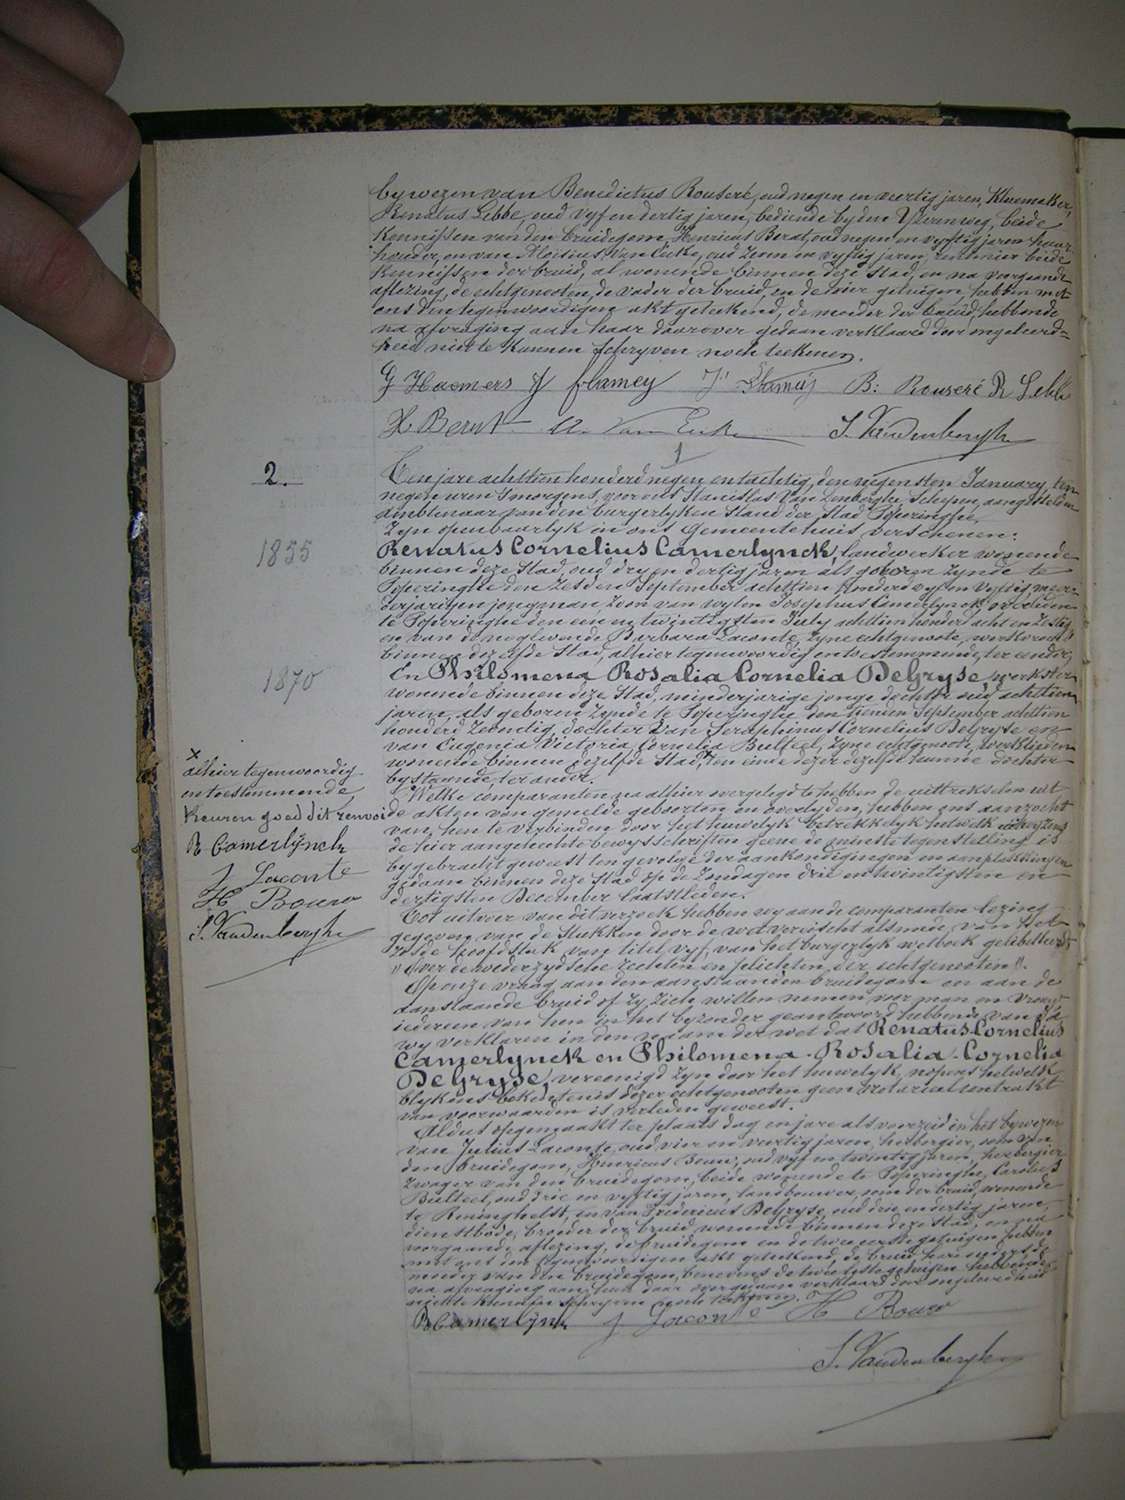 bywezen van Benedictus Rouseré, oud negen en veertig jaren, Kleermaker,
Lebbe, oud vyf en dertig jaren, bediende by den Yzerenweg, beide
Kennissen van den bruidegom, Henricus Berat, oud negen en vyftig jaren, huur-
houder, en van Aloisius Van Eecke, oud zeven en vyftig jaren, rentenier beide
Kennissen der bruid, al wonende binnen deze Stad, en na voorgaande
aflezing, de echtgenooten, de vader der bruid, en de vier getuigen hebben met
ons den tegenwoordigen akt geteekend, de moeder der bruid, hebbende
na afvraging aan haar daarover gedaan verklaard door ongeleerd-
heid niet te kunnen schryven noch teekenen.
Haemers flamey B: Rouseré R Lebbe
H Berat Van Eecke S. Vandenberghe
2.
Ten jare achttien honderd negen en tachtig, den negensten January, ten
negen uren smorgens, voor ons Stanislas Van Zenberghe, Schepen, aangestelden
ambtenaar van den burgerlyken Stand der Stad Poperinghe,
Zyn openbaarlyk in ons Gemeentehuis verschenen:
1855
Renatus Cornelius Camerlynck, landwerker wonende
binnen deze Stad, oud dry en dertig jaren, als geboren zynde te
Poperinghe den zesden September achttien honderd vyf en vyftig, meer-
derjarigen jongman, zoon van wylen Josephus Camerlynck overleden
te Poperinghe den een en twintigsten July achttien honderd acht en zestig
en van de nog levende Barbara Laconte, zyne echtgenoote, werkvrouw
binnen dezelfde Stad, alhier tegenwoordig en toestemmende, ter eender;
1870
En Philomena Rosalia Cornelia DeGryse, werkster
wonende binnen deze Stad, minderjarige jonge dochter oud achttien
jaren, als geboren zynde te Poperinghe den tienden September achttien
honderd zeventig, dochter van Seraphinus Cornelius DeGryse en
van Eugenia Victoria Cornelia Bulteel, zyne echtgenoote, werklieden
wonende binnen dezelfde Stad, x ten einde dezer dezelfde hunne dochter
bystaande, ter ander.
x
alhier tegenwoordig
en toestemmende,
Keuren goed dit renvoi
R Camerlynck
J Laconte
H Bouw
S. Vandenberghe
Welke comparanten na alhier overgelegd te hebben de uittreksels uit
de akten van gemelde geboorten en overlyden, hebben ons aanzocht
van hen te verbinden door het huwelyk betrekkelyk hetwelk
de hier aangehechte bewysschriften geene de minste tegenstelling is
bygebracht geweest ten gevolge der aankondigingen en aanplakkingen
gedaan binnen deze Stad op de Zondagen drie en twintigsten en
dertigsten December laatstleden.
Tot uitvoer van dit verzoek hebben wy aan de comparanten lezing
gegeven van de Stukken door de wet vereischt alsmede van Het
zesde hoofdstuk van titel vyf, van het burgerlyk wetboek getiteld:
"Over de wederzydsche rechten en plichten der echtgenooten".
Op onze vraag aan den aanstaanden bruidegom en aan de
aanstaande bruid of zy zich willen nemen voor man en vrouw
iedereen van hen in het byzonder geantwoord hebbende van Ja
wy verklaren in den naam der wet dat Renatus Cornelius
Camerlynck en Philomena Rosalia Cornelia
DeGryse, vereenigd zyn door het huwelyk, nopens hetwelk
blykens bekentenis dezer echtgenooten geen notariaal contrakt
van voorwaarden is verleden geweest.
Aldus opgemaakt ter plaats dag en jare als voorzeid in het bywezen
van Julius Laconte, oud vier en veertig jaren, herbergier, oom van
den bruidegom, Henricus Bouw, oud vyf en twintig jaren, herbergier
zwager van den bruidegom, beide wonende te Poperinghe, Carolus
Bulteel, oud drie en vyftig jaren, landbouwer, oom der bruid, wonende
te Reninghelst, en van Fredericus DeGryse, oud drie en dertig jaren,
dienstbode, broeder der bruid wonende binnen deze Stad, en na
voorgaande aflezing, de bruidegom en de twee eerste getuigen hebben
met ons den tegenwoordigen akt geteekend, de bruid, hare ouders, de
moeder van den bruidegom, benevens de twee laatste getuigen hebbende
na afvraging aan hun daar over gedaan verklaard door ongeleerdheid
niet te kunnen schryven noch teekenen.
R Camerlynck J Laconte H Bouw
S. Vandenberghe